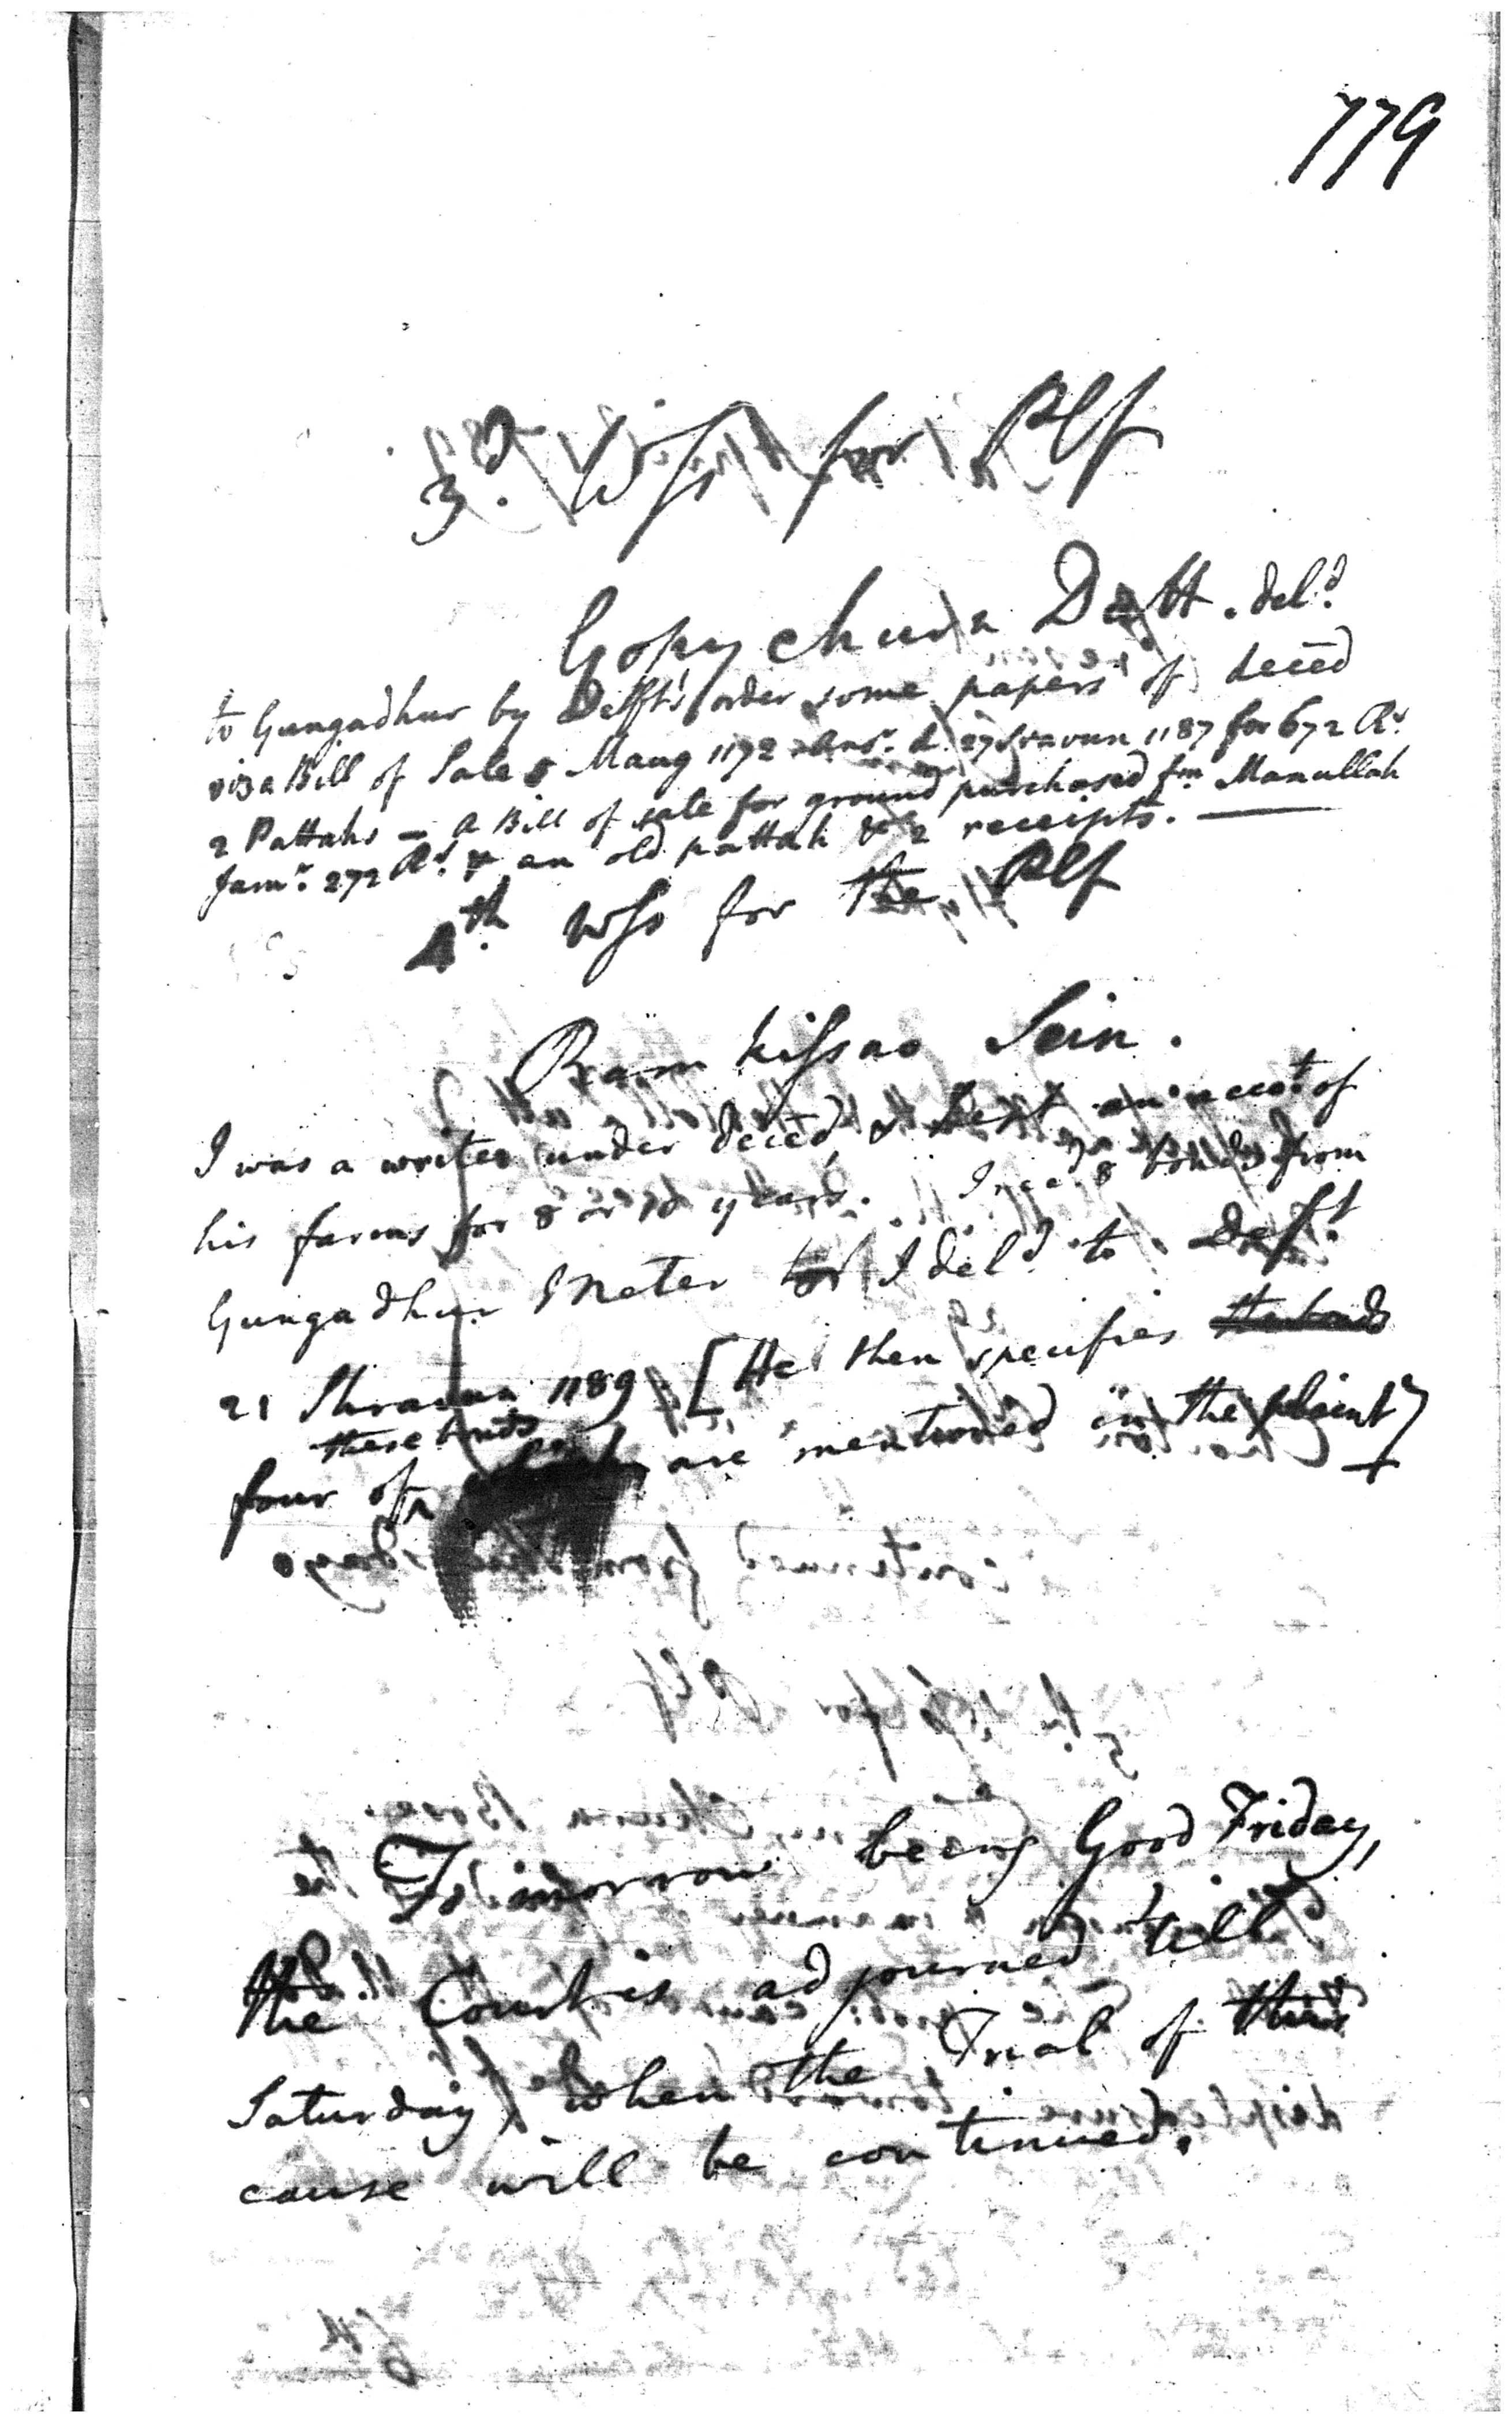 779
3.d Wss for Plf
Gopy churn Dutt . del.d
to Gungadhur by Deft's order some papers of deced
viz a Bill of Sale Maug 1172 27 Sravun 1187 for 672 Rs
2 Pattahs — a Bill of sale for ground purchased fm Manullah
Jamr. 272 Rs. & an old pattah & 2 receipts. —
4th. Wss for the Plf
Ram kissno Sein .
I was a writer under deced, & kept an acct. of
his farms for 8 or 10 years. I recd. 8 bonds from
Gungadhur Meter I deld. to Deft.
21 Shravun 1189. [He then specifies the bonds
these bonds
four of are mentioned in the plaint]
To morrow being Good Friday,
the Court is adjourned till
Saturday, when the Trial of this
cause will be continued.